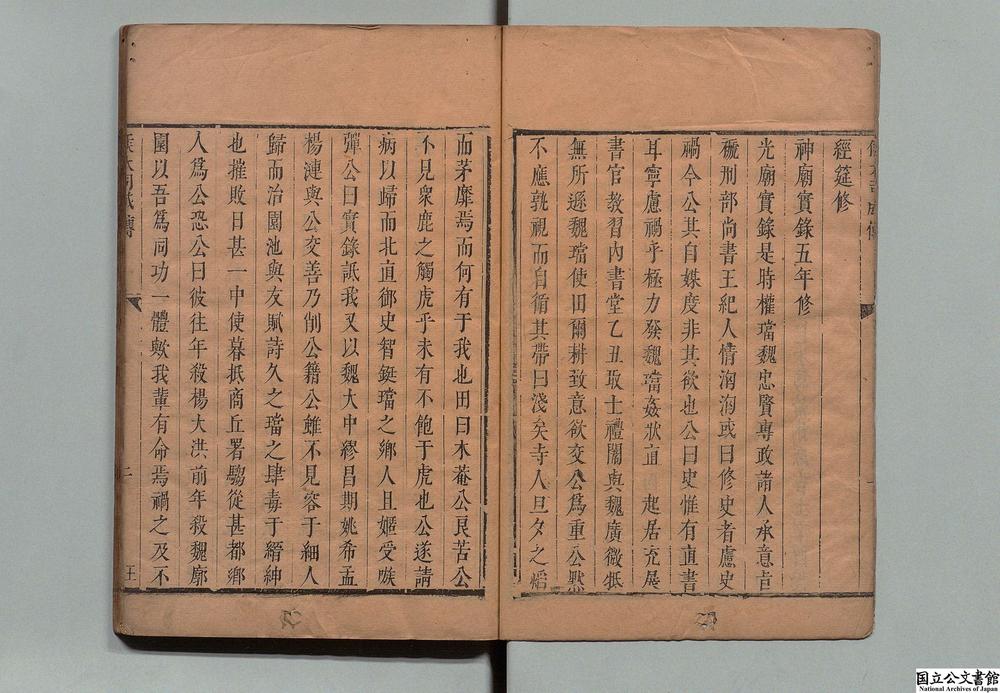 經筵修
神廟實錄五年修
光廟實錄是時權璫魏忠賢專政諸人承意旨
褫刑部尚書王紀人情洶洶或曰修史者慮史
禍今公其自媒度非其欲也公曰史惟有直書
耳寧慮禍乎極力發魏璫姦狀直 起居充展
書官教習內書堂乙丑取士禮闈與魏廣微抵
無所遜魏璫使田爾耕致意欲交公爲重公默
不應孰視而自循其帶曰淺矣寺人旦夕之熖
而茅靡焉而何有于我也田曰木菴公良苦公
不見衆鹿之觸虎乎未有不飽于虎也公遂請
病以歸而北直御史智鋌璫之鄉人且姬受嗾
彈公曰實錄詆我又以魏大中繆昌期姚希孟
楊漣與公交善乃削公籍公雖不見容于細人
歸而治園池與友賦詩久之璫之肆毒于縉紳
也摧敗日甚一中使暮抵商丘署騶從甚都鄉
人爲公恐公曰彼往年殺楊大洪前年殺魏廓
園以吾爲同功一體歟我輩有命焉禍之及不
國立公文書館
National Archives of Japan